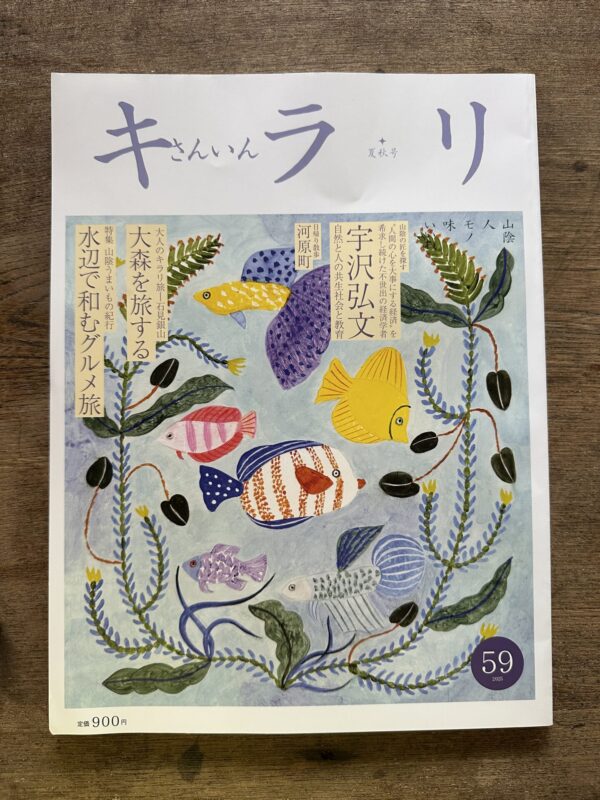 さんいん
キラリ
夏秋号
山陰
人
モノ
味
い
山陰の匠を探す
「人間の心を大事にする経済」を
希求し続けた不世出の経済学者
宇沢弘文
自然と人の共生社会と教育
日帰り散歩
河原町
大人のキラリ旅―石見銀山
大森を旅する
特集 山陰うまいもの紀行
水辺で和むグルメ旅
59
2025
定価900円